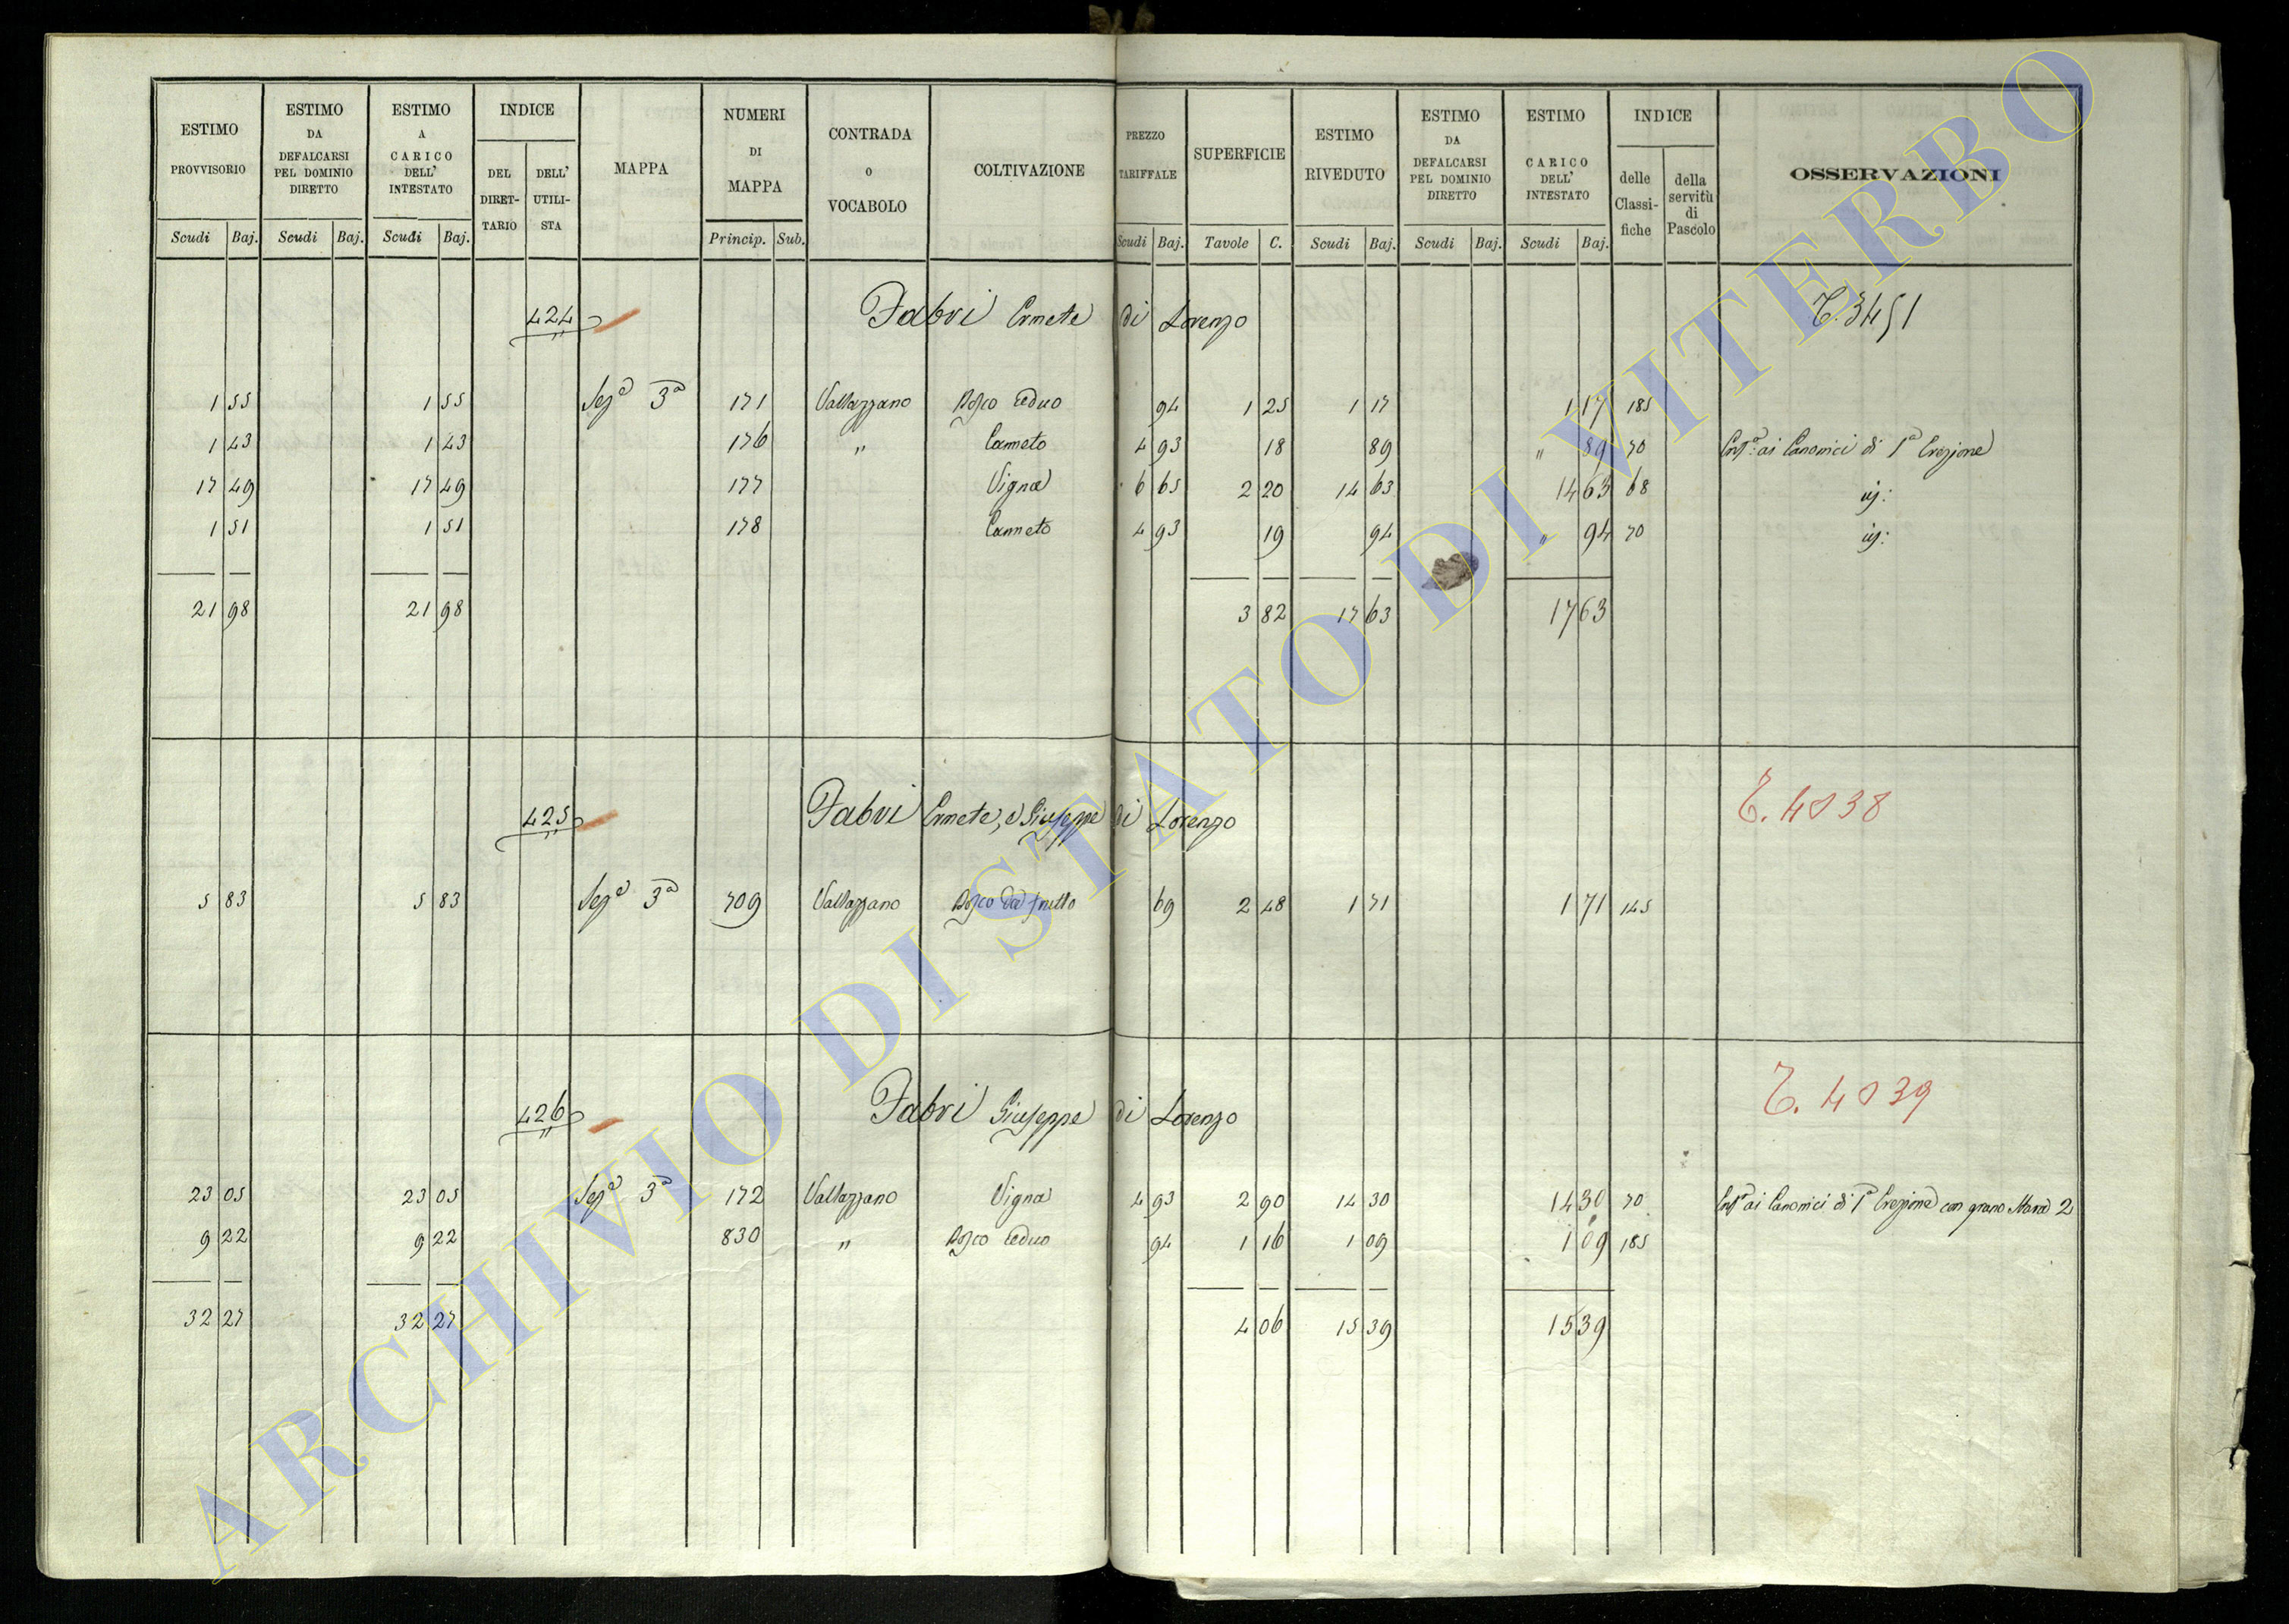 ESTIMO PROVVISORIO Scudi Baj.
ESTIMO DA DEFALCARSI PEL DOMINIO DIRETTO Scudi Baj.
ESTIMO A CARICO DELL' INTESTATO Scudi Baj.
INDICE DEL DIRET-TARIO DELL' UTILI-STA
MAPPA
NUMERI DI MAPPA Princip. Sub.
CONTRADA O VOCABOLO
COLTIVAZIONE
PREZZO TARIFFALE Scudi Baj.
SUPERFICIE Tavole C.
ESTIMO RIVEDUTO Scudi Baj.
ESTIMO DA DEFALCARSI PEL DOMINIO DIRETTO Scudi Baj.
ESTIMO CARICO DELL' INTESTATO Scudi Baj.
INDICE delle Classi-fiche della servitù di Pascolo
OSSERVAZIONI
424 Fabri Ermete di Lorenzo T. 3451
1 55 1 55 Sez.a 3a 171 Vallazzano Bosco Ceduo 94 1 25 1 17 1 17 185
1 43 1 43 176 " Canneto 4 93 18 89 " 89 70 ai Canonici di 1a Erezione
17 49 17 49 177 Vigna 6 65 2 20 14 63 14 63 68
1 51 1 51 178 Canneto 4 93 19 94 " 94 70
21 98 21 98 3 82 17 63 17 63
425 Fabri Ermete, e Giuseppe di Lorenzo T. 4038
5 83 5 83 Sez.a 3a 709 Vallazzano Bosco da frutto 69 2 48 1 71 1 71 145
426 Fabri Giuseppe di Lorenzo T. 4039
23 05 23 05 Sez.a 3a 172 Vallazzano Vigna 4 93 2 90 14 30 14 30 70 ai Canonici di 1a Erezione con grano 2
9 22 9 22 830 " Bosco Ceduo 94 1 16 1 09 1 09 185
32 27 32 27 4 06 15 39 15 39
ARCHIVIO DI STATO DI VITERBO